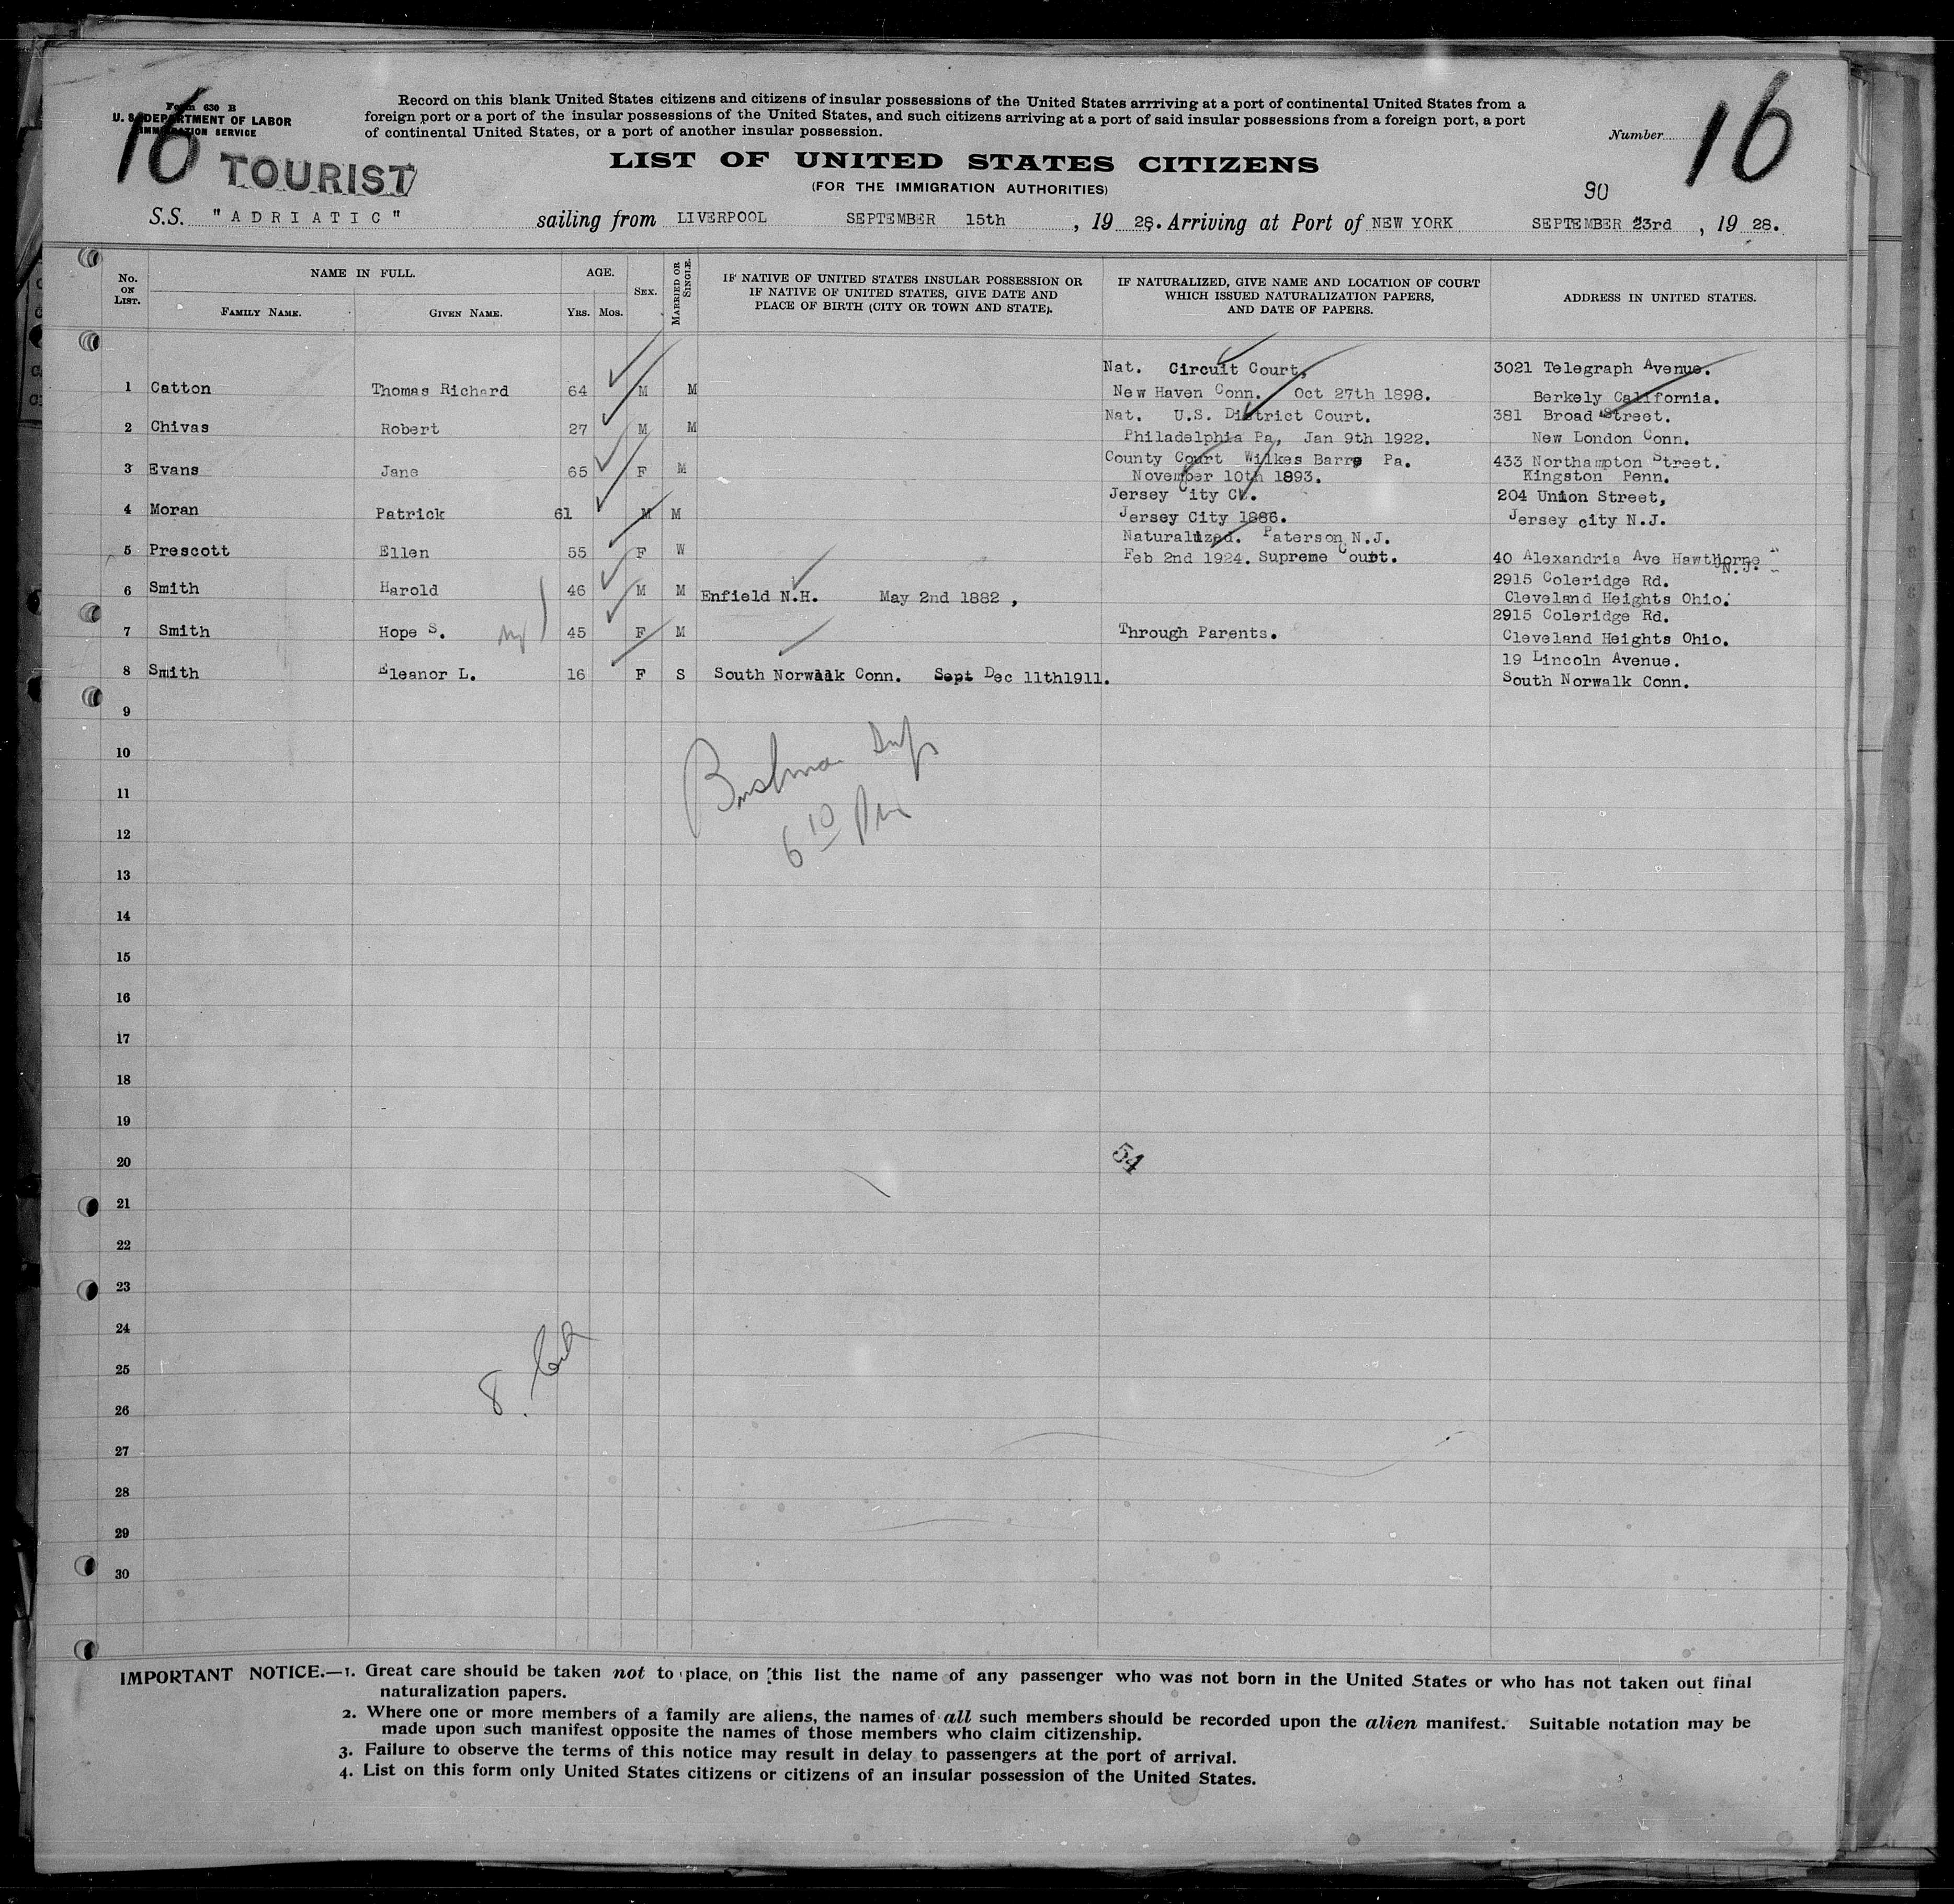 Form 630 B
U. S. DEPARTMENT OF LABOR
IMMIGRATION SERVICE
16
TOURIST
Record on this blank United States citizens and citizens of insular possessions of the United States arrriving at a port of continental United States from a
foreign port or a port of the insular possessions of the United States, and such citizens arriving at a port of said insular possessions from a foreign port, a port
of continental United States, or a port of another insular possession.
Number 16
LIST OF UNITED STATES CITIZENS
(FOR THE IMMIGRATION AUTHORITIES)
90
S.S. "ADRIATIC" sailing from LIVERPOOL SEPTEMBER 15th, 19 28. Arriving at Port of NEW YORK SEPTEMBER 23rd, 19 28.
No. ON LIST.
NAME IN FULL.
FAMILY NAME. GIVEN NAME.
AGE.
YRS. MOS.
SEX.
MARRIED OR SINGLE.
IF NATIVE OF UNITED STATES INSULAR POSSESSION OR
IF NATIVE OF UNITED STATES, GIVE DATE AND
PLACE OF BIRTH (CITY OR TOWN AND STATE).
IF NATURALIZED, GIVE NAME AND LOCATION OF COURT
WHICH ISSUED NATURALIZATION PAPERS,
AND DATE OF PAPERS.
ADDRESS IN UNITED STATES.
Nat. Circuit Court, 3021 Telegraph Avenue.
1 Catton Thomas Richard 64 M M New Haven Conn. Oct 27th 1898. Berkely California.
Nat. U.S. District Court. 381 Broad Street.
2 Chivas Robert 27 M M Philadelphia Pa, Jan 9th 1922. New London Conn.
County Court Wilkes Barre Pa. 433 Northampton Street.
3 Evans Jane 65 F M November 10th 1893. Kingston Penn.
Jersey City Ct. 204 Union Street,
4 Moran Patrick 61 M M Jersey City 1886. Jersey city N.J.
Naturalized. Paterson N.J.
5 Prescott Ellen 55 F W Feb 2nd 1924. Supreme Court. 40 Alexandria Ave Hawthorne N.J.
2915 Coleridge Rd.
6 Smith Harold 46 M M Enfield N.H. May 2nd 1882, Cleveland Heights Ohio.
2915 Coleridge Rd.
7 Smith Hope S. 45 F M Through Parents. Cleveland Heights Ohio.
19 Lincoln Avenue.
8 Smith Eleanor L. 16 F S South Norwalk Conn. Sept Dec 11th1911. South Norwalk Conn.
9
10
11
12
6 10 PM
13
14
15
16
17
18
19
20
54
21
22
23
24
25
8.
26
27
28
29
30
IMPORTANT NOTICE.—1. Great care should be taken not to place on this list the name of any passenger who was not born in the United States or who has not taken out final
naturalization papers.
2. Where one or more members of a family are aliens, the names of all such members should be recorded upon the alien manifest. Suitable notation may be
made upon such manifest opposite the names of those members who claim citizenship.
3. Failure to observe the terms of this notice may result in delay to passengers at the port of arrival.
4. List on this form only United States citizens or citizens of an insular possession of the United States.